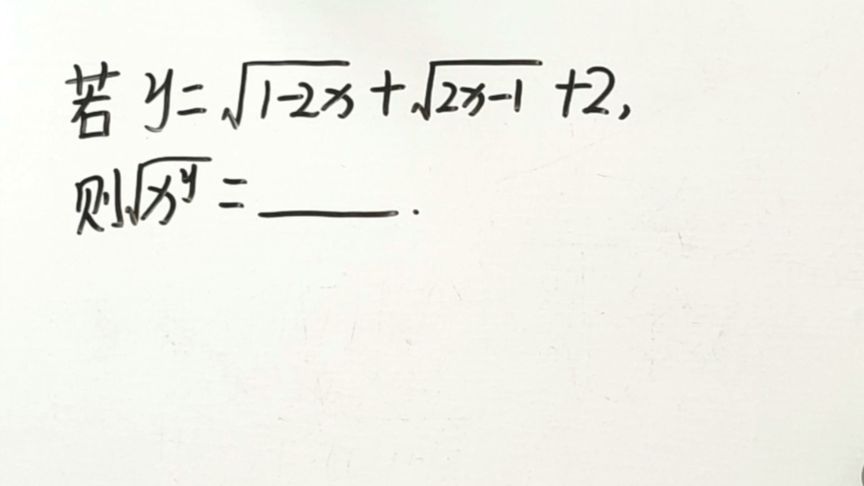 若 y=√(1-2x)+√(2x-1)+2,
则√(x^y)=____.